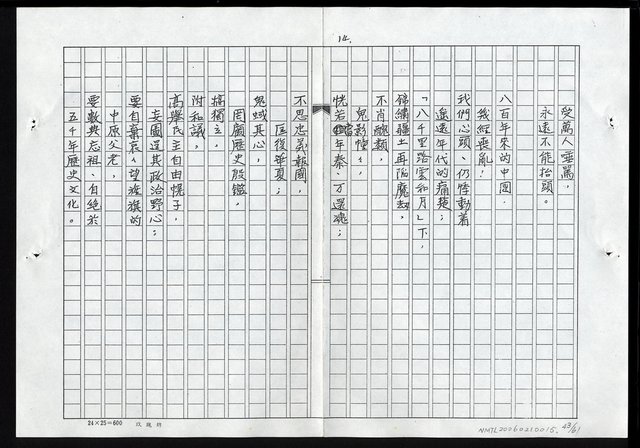 14.
受萬人唾罵，
永遠不能抬頭。
八百年來的中國
幾經喪亂！
我們心頭、仍悸動着
遙遠年代的痛楚；
「八千里路雲和月」下，
錦繡疆土再陷魔劫，
不肖醜類，
鬼影幢幢，
恍若當年秦、万還魂；
不思忠義報國，
匡復華夏；
鬼蜮其心，
罔顧歷史殷鑑，
搞獨立，
附和議，
高擧民主自由幌子，
妄圖逞其政治野心；
要自棄哀哀望旌旗的
中原父老，
要數典忘祖、自絕於
五千年歷史文化。
24×25=600
NMTL20060210015. 43/61